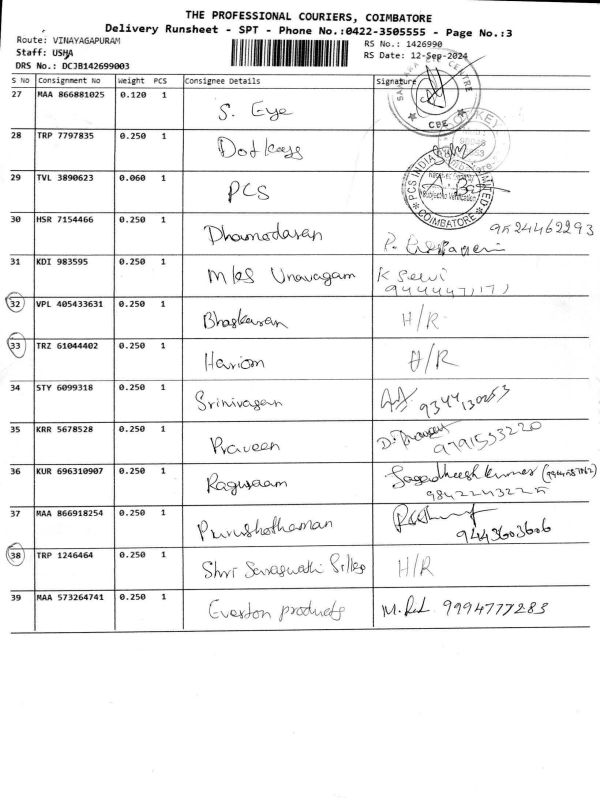 THE PROFESSIONAL COURIERS, COIMBATORE
Delivery Runsheet - SPT - Phone No.:0422-3505555 - Page No.:3
Route: VINAYAGAPURAM
RS No.: 1426990
Staff: USHA
RS Date: 12-Sep-2024
DRS No.: DCJB142699003
S No Consignment No Weight PCS Consignee Details Signature
27 MAA 866881025 0.120 1 S. Eye
CBE
28 TRP 7797835 0.250 1 Dot kays
29 TVL 3890623 0.060 1 PCS
PCS INDIA LIMITED COIMBATORE
Subject to Verification
30 HSR 7154466 0.250 1 Dhamodaran 9524462293
31 KDI 983595 0.250 1 MKS Unavagam K Selvi
32 VPL 405433631 0.250 1 Bhaskaran H/R
33 TRZ 61044402 0.250 1 Hariom H/R
34 STY 6099318 0.250 1 Srinivasan 9344130253
35 KRR 5678528 0.250 1 Praveen 9791533220
36 KUR 696310907 0.250 1 Raguraam Jagadheesh kumar
37 MAA 866918254 0.250 1 Purushothaman 9443603606
38 TRP 1246464 0.250 1 Shri Saraswathi Silks H/R
39 MAA 573264741 0.250 1 Everton products 9994777283